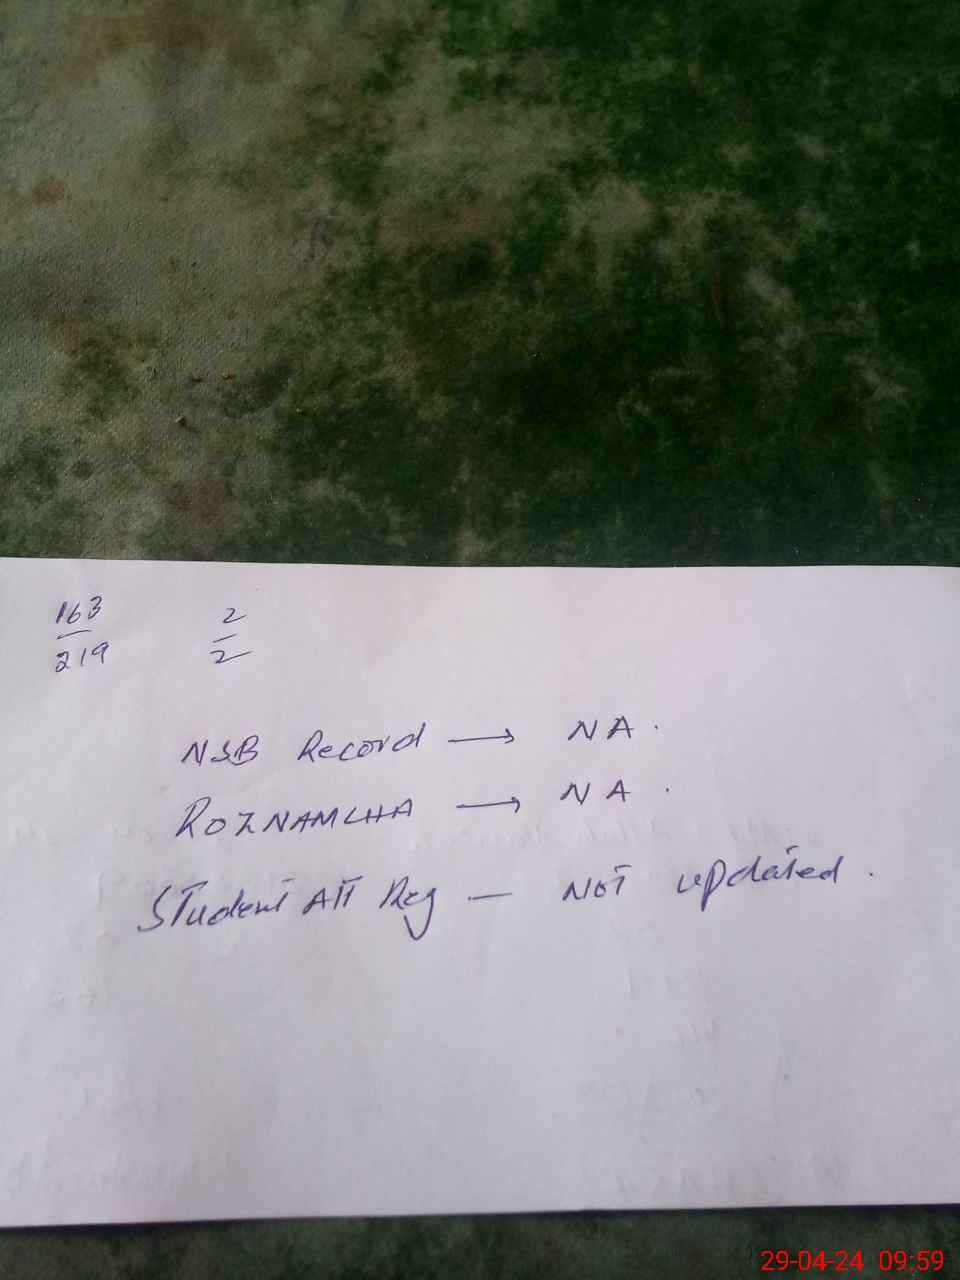 163 2
219 2
NSB Record → NA.
ROZNAMCHA → NA.
Student ATT Reg — NOT updated.
29-04-24 09:59